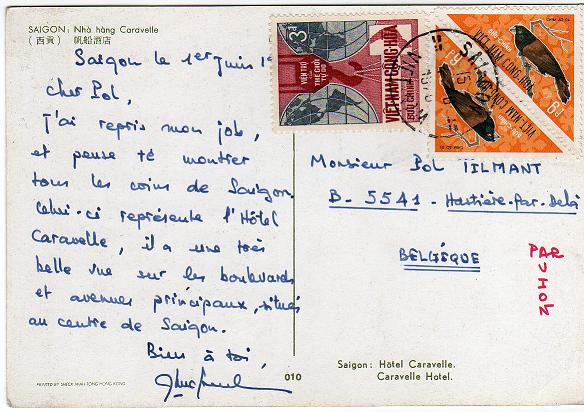 SAIGON: Nhà hàng Caravelle
(西貢) 帆船酒店
Saigon le 1er Juin
cher Pol,
J'ai repris mon job,
et pense te montrer
tous les coins de Saigon.
Celui-ci représente l'Hôtel
Caravelle, il a une très
belle vue sur les boulevards
et avenues principaux, situés
au centre de Saigon.
Bien à toi,
PRINTED BY SHECK WAH TONG HONG KONG
010
3đ
VIỆN TRỢ THẾ GIỚI TỰ DO
VIỆT-NAM CỘNG-HÒA
BƯU-CHÍNH
VIỆT-NAM CỘNG-HÒA
SAIGON
Monsieur Pol TILMANT
B-5541-Hastière-Par-Delà
BELGIQUE
PAR
AVION
Saigon: Hôtel Caravelle.
Caravelle Hotel.